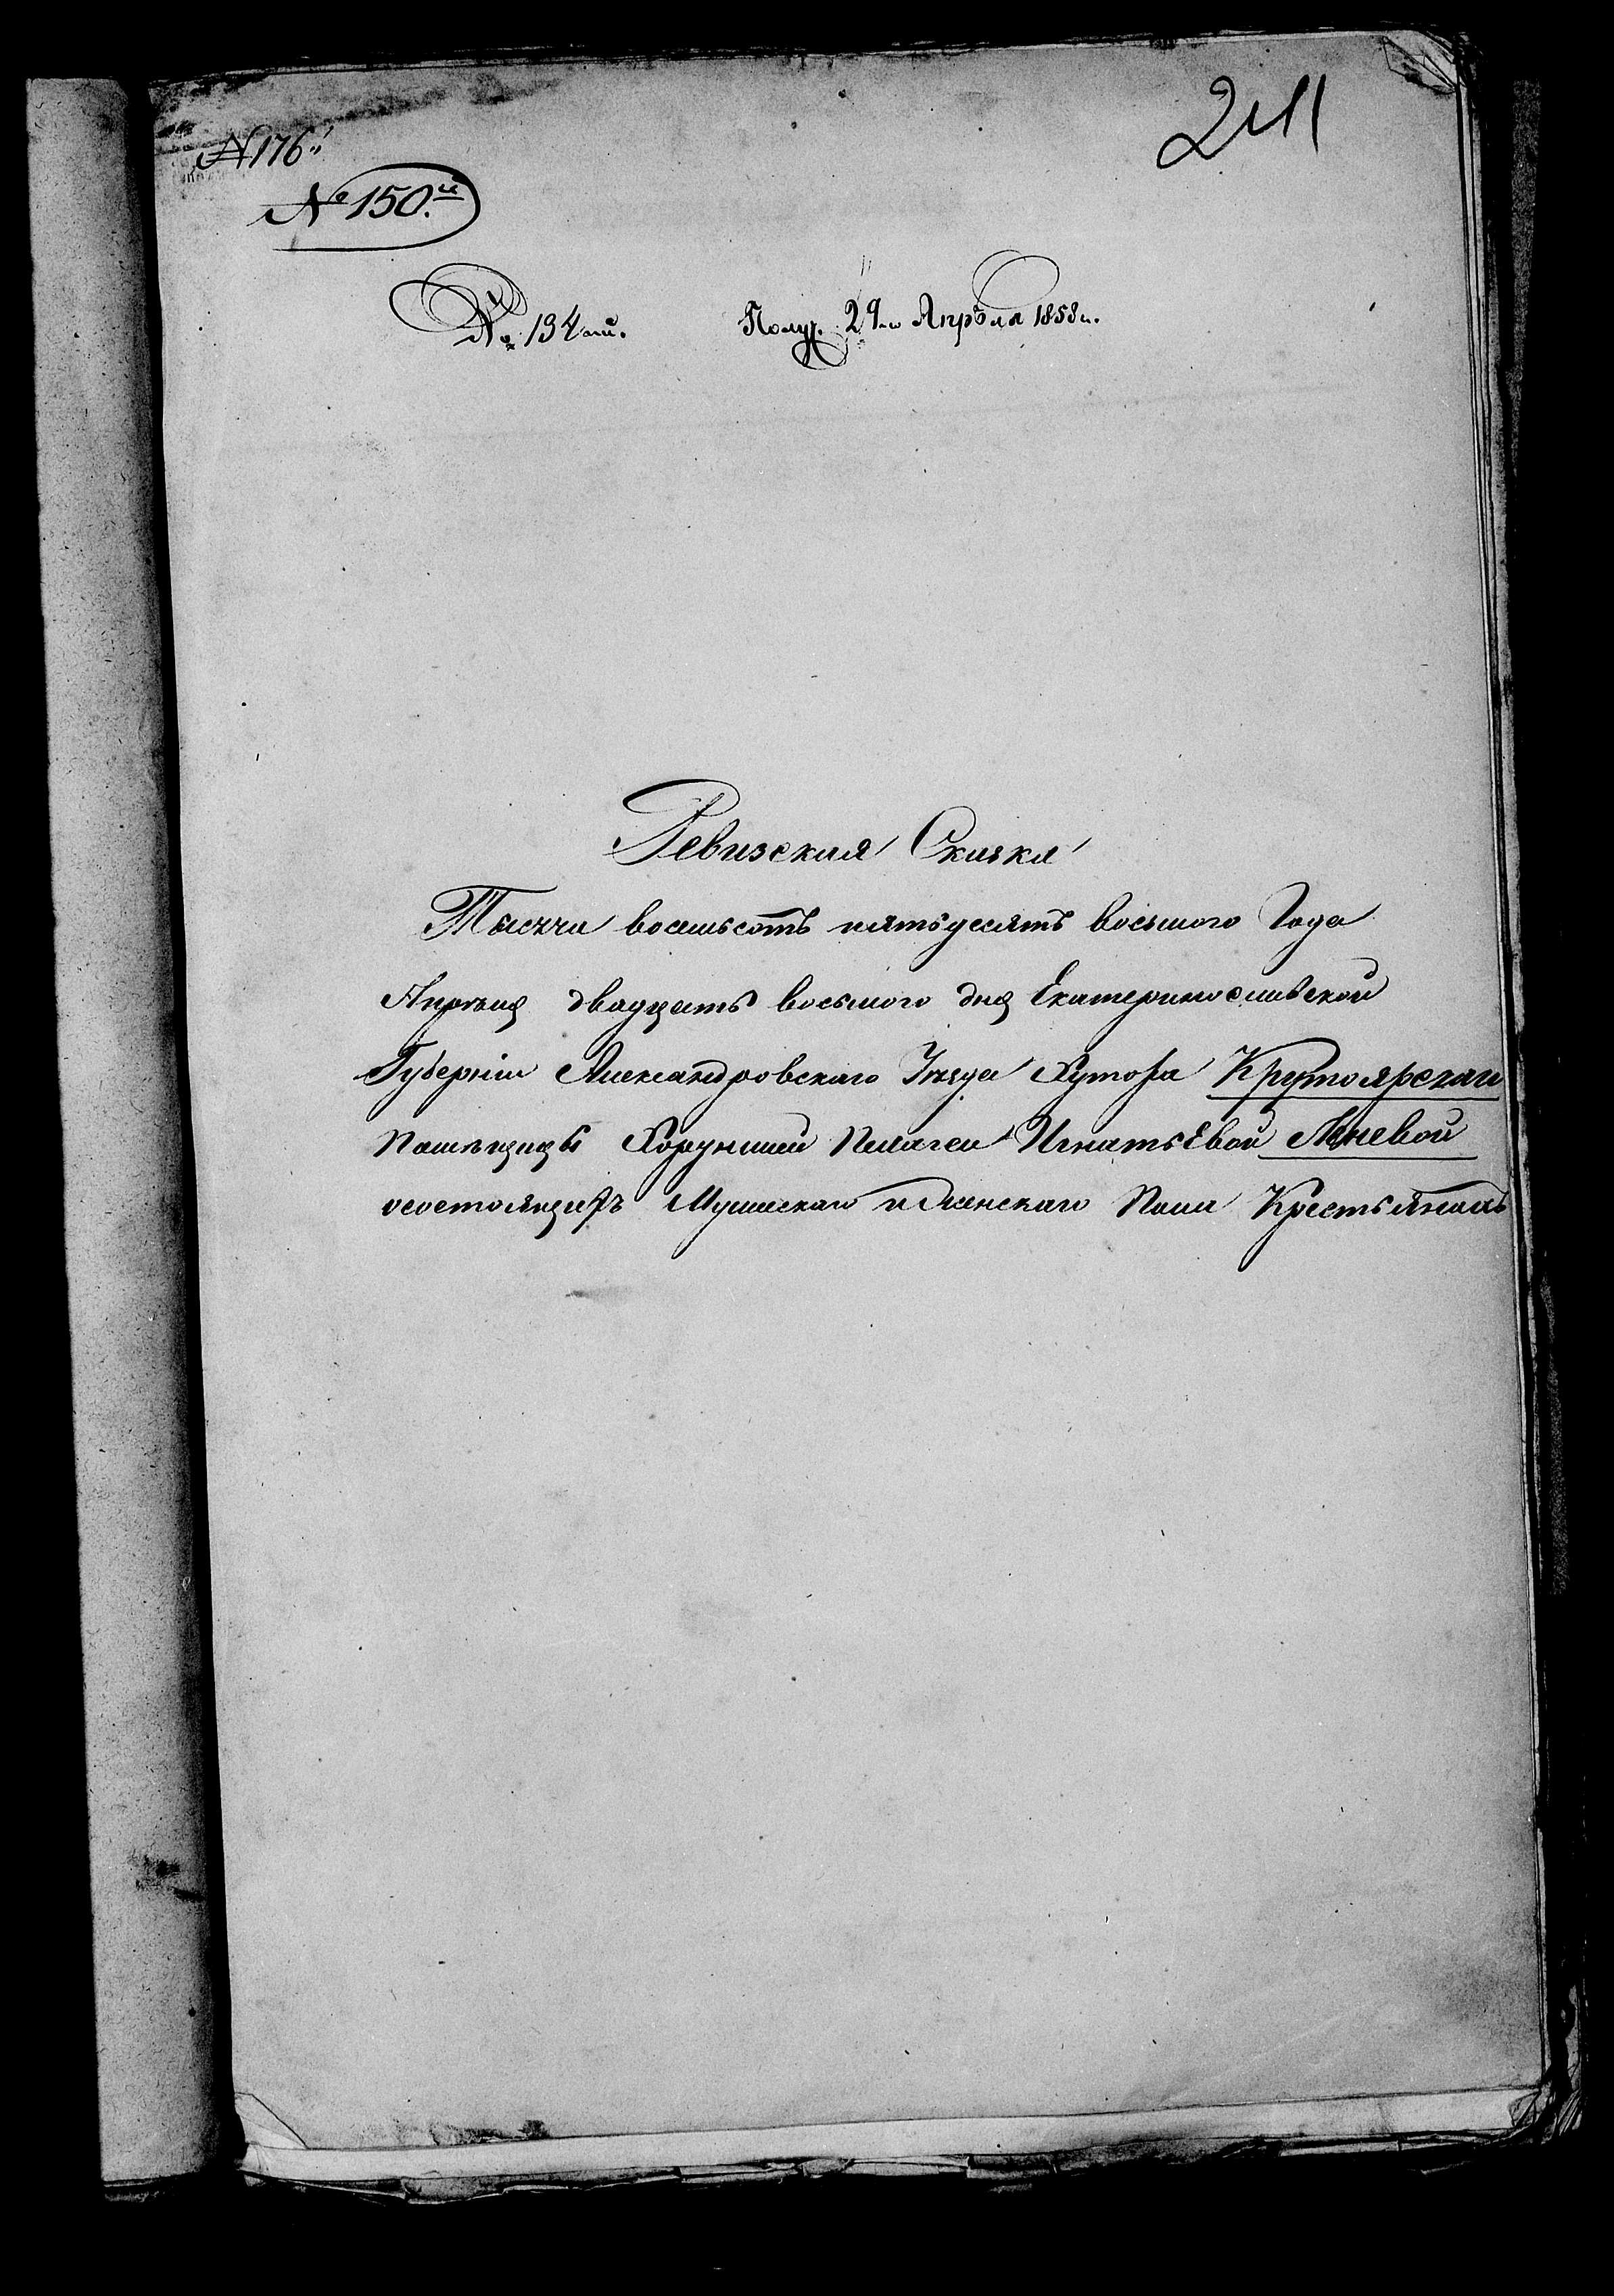 241
№ 176.
№ 150.й
№ 134ый. Получ. 29го Апрѣля 1858г.
Ревизская Сказка
Тысяча восемьсотъ пятьдесятъ восьмого Года
Апрѣля двадцать восьмого дня Екатеринославской
Губерніи Александровскаго Уѣзда Хутора Крутоярскаго
Помѣщицы Хорунжей Пелагеи Игнатьевой
осостоящихъ Мужескаго и Женскаго Пола Крестьянахъ